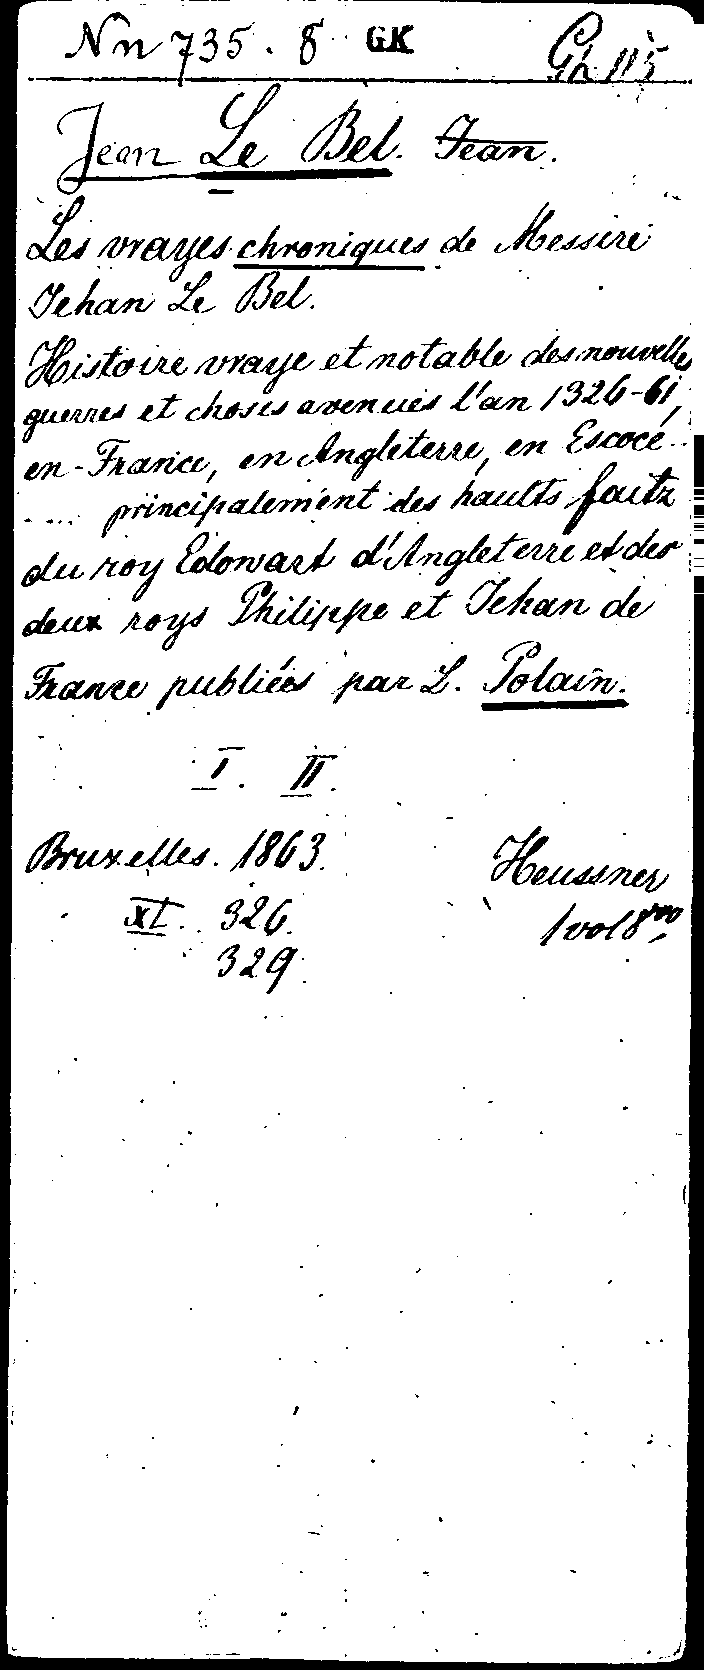 Nn 735. 8 GK Gh 115
Jean Le Bel. Jean.
Les vrayes chroniques de Messire
Jehan Le Bel.
Histoire vraye et notable des nouvelles
guerres et choses avenues l'an 1326-61,
en France, en Angleterre, en Escoce..
.... principalement des haults faitz
du roy Edowart d'Angleterre et des
deux roys Philippe et Jehan de
France publiées par L. Polain.
I. II.
Bruxelles. 1863. Heussner
XL. 326. 1 vol 8vo
329.